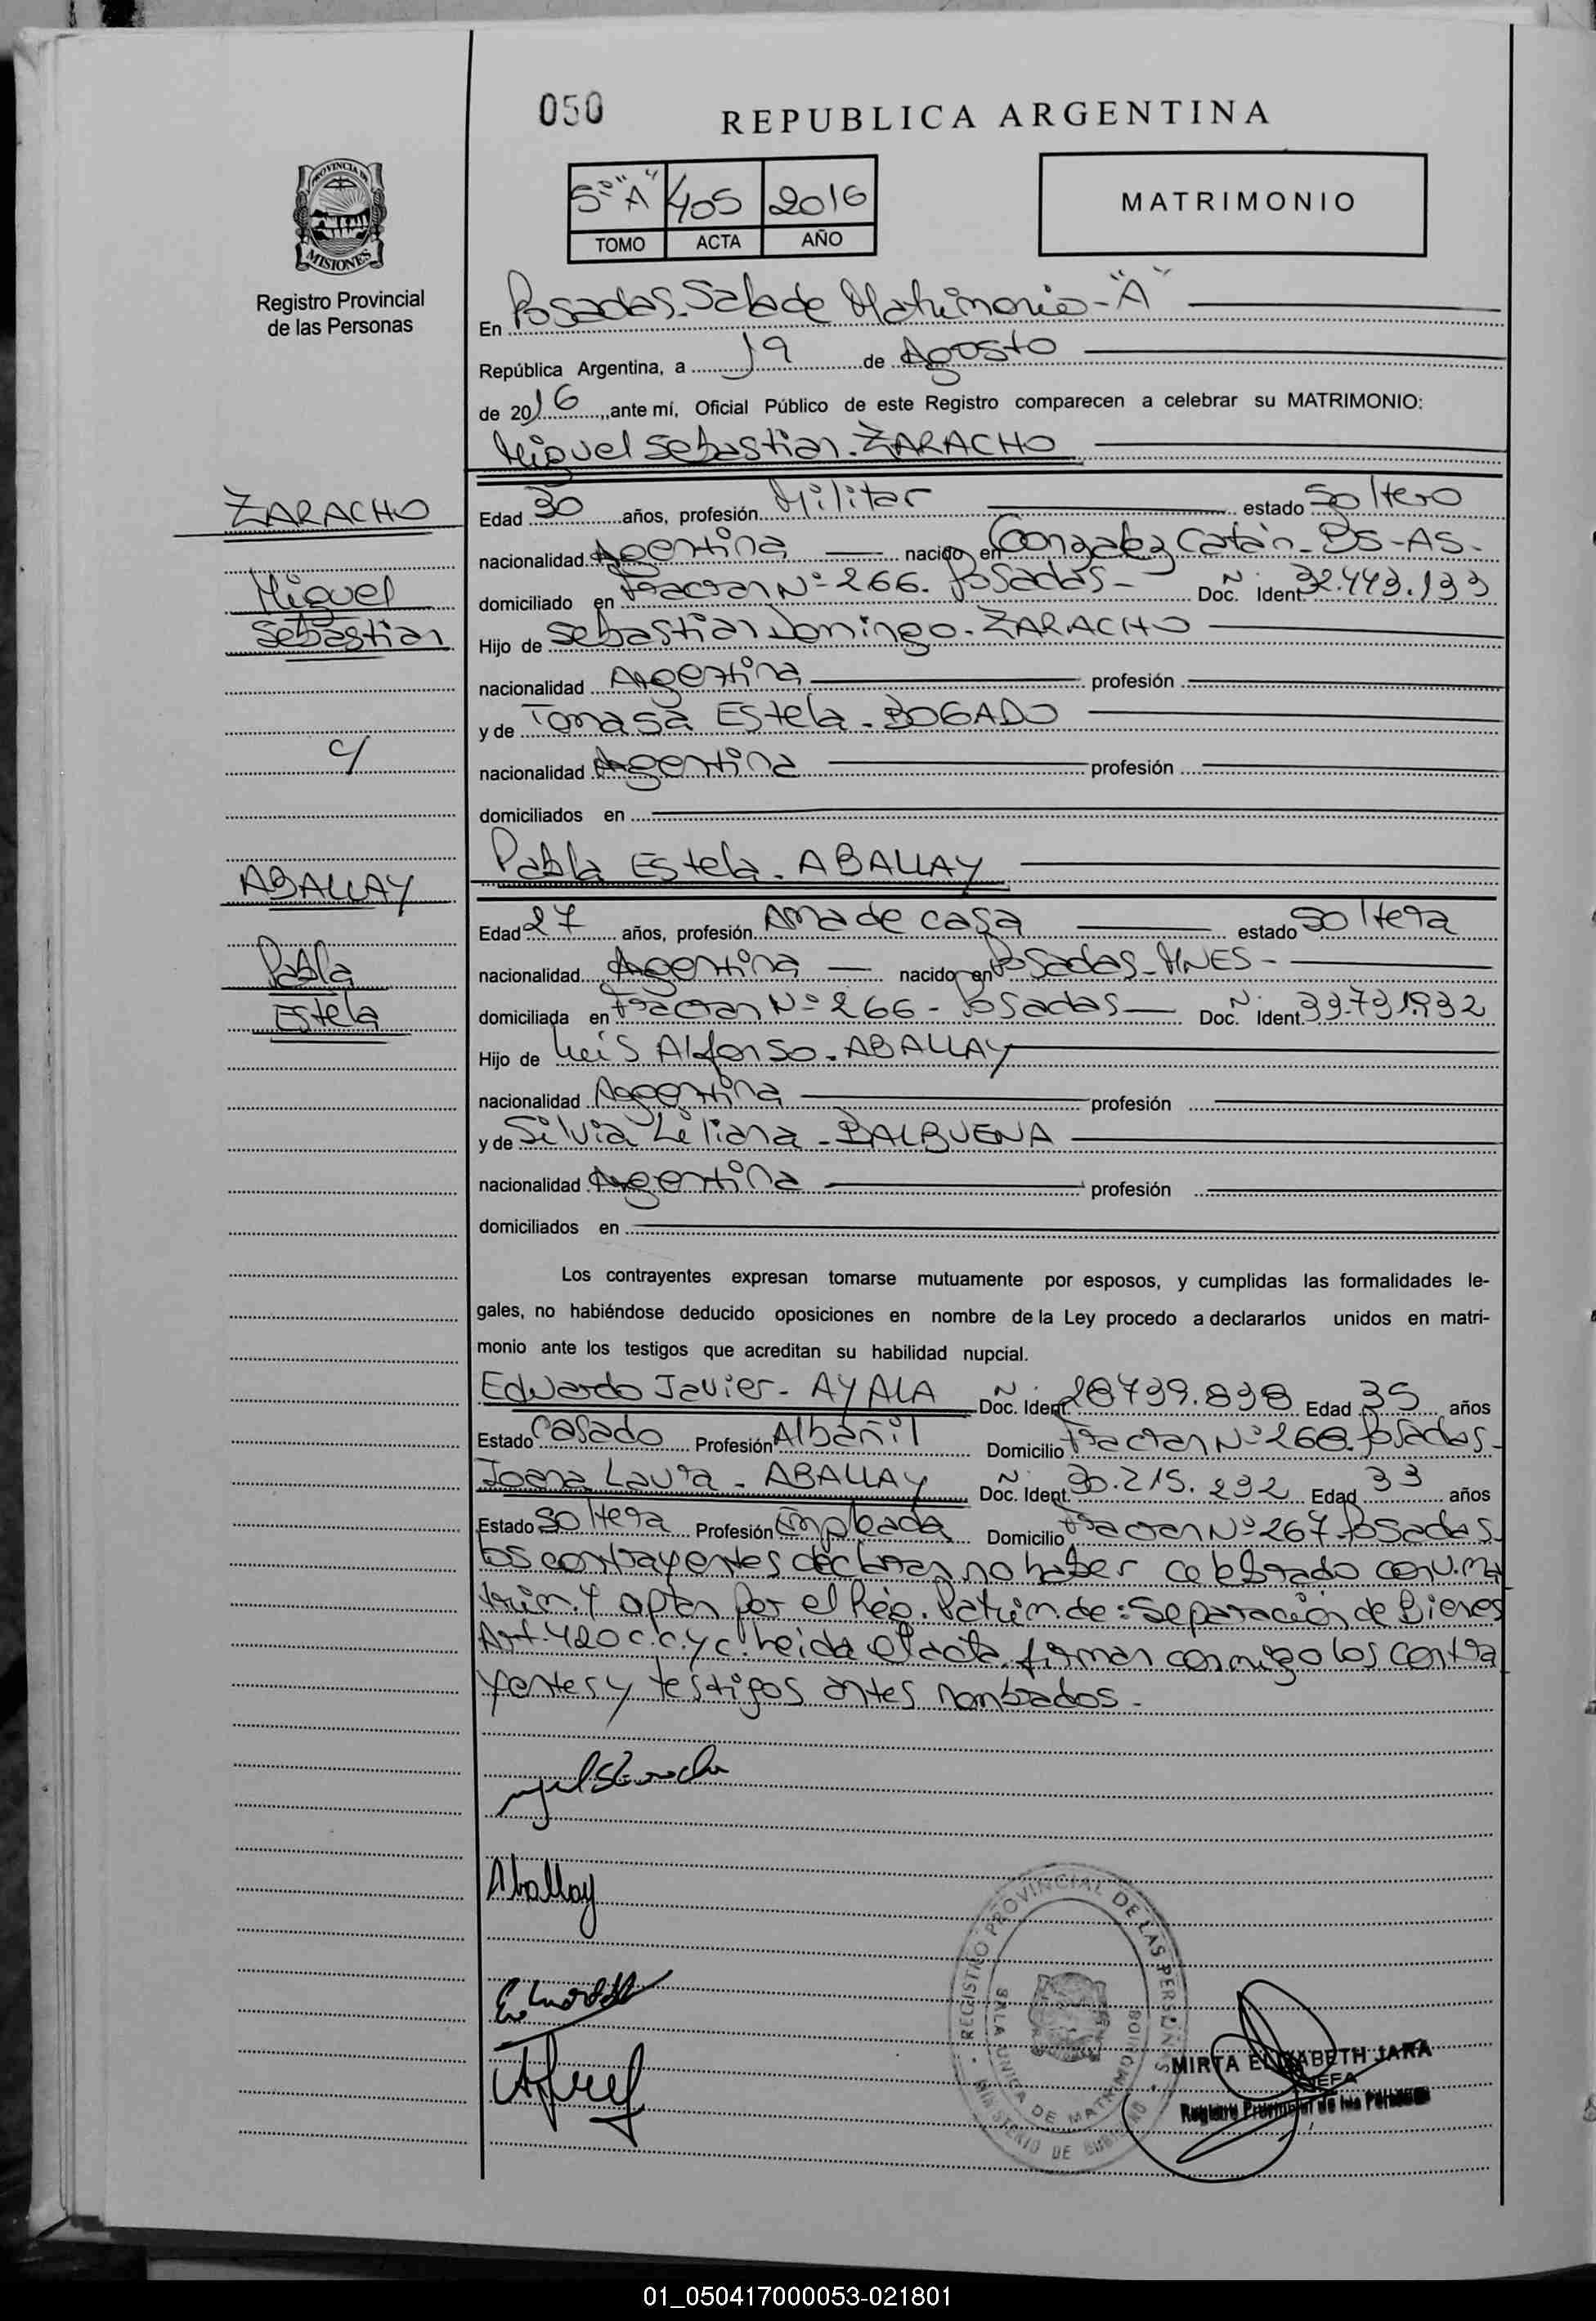 050
REPUBLICA ARGENTINA
PROVINCIA DE
MISIONES
Registro Provincial
de las Personas
5º"A" 405 2016
TOMO ACTA AÑO
MATRIMONIO
En Posadas-Sala de Matrimonio-"A"
República Argentina, a 19 de Agosto
de 2016, ante mí, Oficial Público de este Registro comparecen a celebrar su MATRIMONIO:
Miguel Sebastian-ZARACHO
ZARACHO
Miguel
Sebastian
c/
ABALLAY
Pabla
Estela
Edad 30 años, profesión Militar estado Soltero
nacionalidad Argentina nacido en Gonzalez Catán-BS-AS-
domiciliado en Nº 266. Posadas- Doc. Ñ. Ident. 32.443.133
Hijo de Sebastian Domingo-ZARACHO
nacionalidad Argentina profesión
y de Tomasa Estela-BOGADO
nacionalidad Argentina profesión
domiciliados en
Pabla Estela-ABALLAY
Edad 27 años, profesión Ama de casa estado Soltera
nacionalidad Argentina nacido en Posadas-MNES-
domiciliada en Nº 266-Posadas Doc. Ñ. Ident. 33.731.932
Hijo de Luis Alfonso-ABALLAY
nacionalidad Argentina profesión
y de Silvia Liliana-BALBUENA
nacionalidad Argentina profesión
domiciliados en
Los contrayentes expresan tomarse mutuamente por esposos, y cumplidas las formalidades le-
gales, no habiéndose deducido oposiciones en nombre de la Ley procedo a declararlos unidos en matri-
monio ante los testigos que acreditan su habilidad nupcial.
Eduardo Javier-AYALA Doc. Ñ. Ident. 28739.898 Edad 35 años
Estado Casado Profesión Albañil Domicilio Nº 268. Posadas-
Joana Laura-ABALLAY Doc. Ñ. Ident. 30.215.292 Edad 33 años
Estado Soltera Profesión Empleada Domicilio Nº 267-Posadas-
Los contrayentes declaran no haber celebrado conv. ma
trim. Y optan por el Rég. Patrim. de: Separación de Bienes
Art. 420 c.c.y c. Leida el acta, firman conmigo los contra
yentes y testigos antes nombrados-
Aballay
REGISTRO PROVINCIAL DE LAS PERSONAS
SALA UNICA DE MATRIMONIOS
MINISTERIO DE GOBIERNO
MIRTA ELIZABETH JARA
JEFA
Registro Provincial de las Personas
01_050417000053-021801